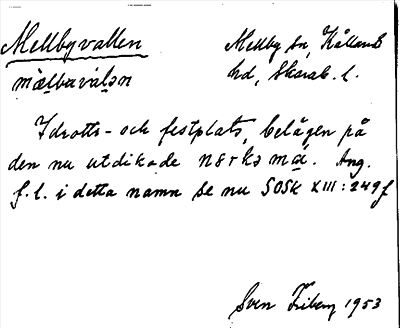 Mellbyvallen
mälbavàlən
Mellby sn, Kållands
hd, Skarab. l.
Idrotts- och festplats, belägen på
den nu utdikade nərkəma. Ang.
f. l. i detta namn se nu SOSK XIII: 249 f
Sven Friberg 1953